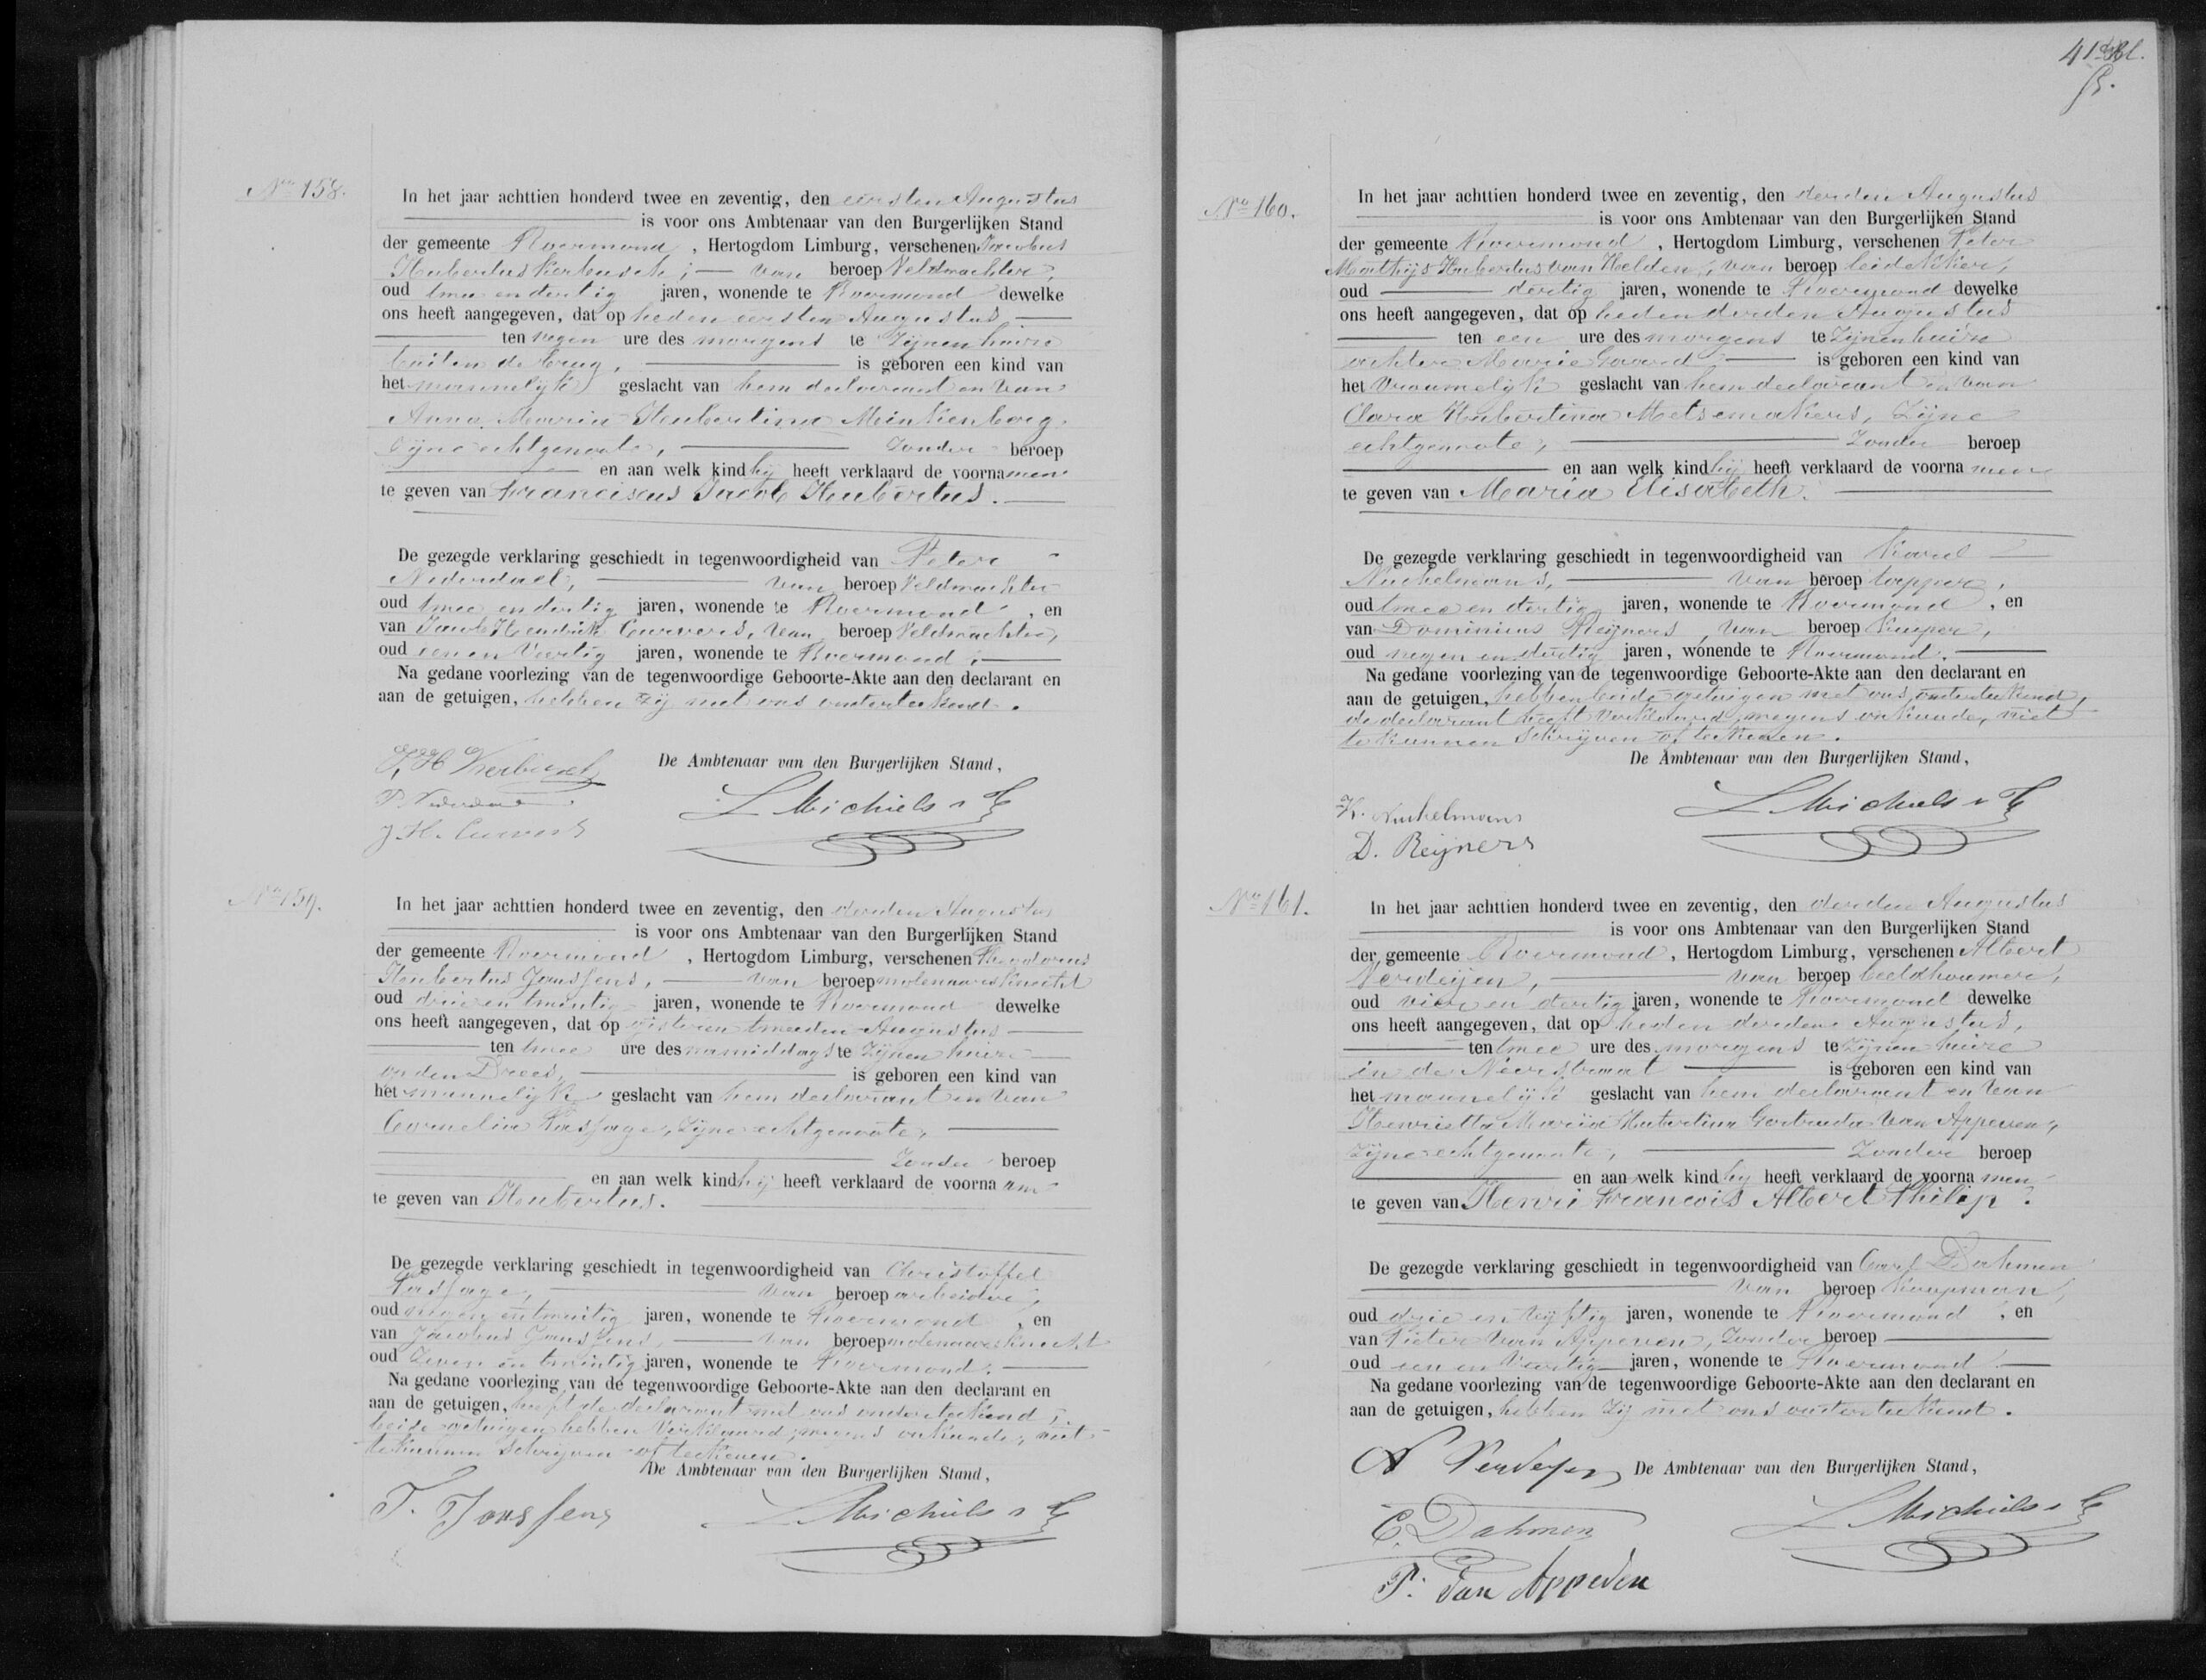 41ste Bl.
No 158.
In het jaar achttien honderd twee en zeventig, den eersten Augustus
is voor ons Ambtenaar van den Burgerlijken Stand
der gemeente Roermond , Hertogdom Limburg, verschenen Jacobus
Hubertus Kerbusch ; van beroep Veldwachter,
oud twee en dertig jaren, wonende te Roermond dewelke
ons heeft aangegeven, dat op heden eersten Augustus
ten negen ure des morgens te Zijnen huize
buiten de brug, is geboren een kind van
het mannelijk geslacht van hem declarant en van
Anna Maria Hubertina Minkenberg,
Zijne echtgenoote, Zonder beroep
en aan welk kind hij heeft verklaard de voornamen
te geven van Franciscus Jacob Hubertus.
De gezegde verklaring geschiedt in tegenwoordigheid van Peter
Nederdael, van beroep Veldwachter
oud twee en dertig jaren, wonende te Roermond , en
van Jacob Hendrik Curvers, van beroep Veldwachter,
oud een en Veertig jaren, wonende te Roermond ;
Na gedane voorlezing van de tegenwoordige Geboorte-Akte aan den declarant en
aan de getuigen, hebben zij met ons onderteekend .
De Ambtenaar van den Burgerlijken Stand,
J. H Kerbusch
P. Nederdael
J. H. Curvers
L Michiels
No 159.
In het jaar achttien honderd twee en zeventig, den derden Augustus
is voor ons Ambtenaar van den Burgerlijken Stand
der gemeente Roermond , Hertogdom Limburg, verschenen Theodorus
Hubertus Janssens, van beroep molenaarsknecht
oud drie en twintig jaren, wonende te Roermond dewelke
ons heeft aangegeven, dat op gisteren tweeden Augustus
ten twee ure des namiddags te Zijnen huize
op den Drees, is geboren een kind van
het mannelijk geslacht van hem declarant en van
Cornelia Passage, Zijne echtgenoote,
Zonder beroep
en aan welk kind hij heeft verklaard de voorna am
te geven van Hubertus.
De gezegde verklaring geschiedt in tegenwoordigheid van Christoffel
Passage, van beroep arbeider,
oud negen en twintig jaren, wonende te Roermond , en
van Jacobus Janssens, van beroep molenaarsknecht
oud Zeven en twintig jaren, wonende te Roermond.
Na gedane voorlezing van de tegenwoordige Geboorte-Akte aan den declarant en
aan de getuigen, heeft de declarant met ons onderteekend ;
beide getuigen hebben Verklaard, wegens onkunde, niet
te kunnen Schrijven of teekenen.
De Ambtenaar van den Burgerlijken Stand,
T. Janssens
L Michiels
No 160.
In het jaar achttien honderd twee en zeventig, den derden Augustus
is voor ons Ambtenaar van den Burgerlijken Stand
der gemeente Roermond , Hertogdom Limburg, verschenen Peter
Mathijs Hubertus van Helden, van beroep leidekker,
oud dertig jaren, wonende te Roermond dewelke
ons heeft aangegeven, dat op heden derden Augustus
ten een ure des morgens te Zijnen huize
achter Marie is geboren een kind van
het Vrouwelijk geslacht van hem declarant en van
Clara Hubertina Metsemakers, Zijne
echtgenoote, Zonder beroep
en aan welk kind hij heeft verklaard de voorna men
te geven van Maria Elisabeth.
De gezegde verklaring geschiedt in tegenwoordigheid van Karel
Nuchelmans, van beroep tapper,
oud twee en dertig jaren, wonende te Roermond , en
van Dominicus Reijners, van beroep Kuiper,
oud negen en dertig jaren, wonende te Roermond.
Na gedane voorlezing van de tegenwoordige Geboorte-Akte aan den declarant en
aan de getuigen, hebben beide getuigen met ons onderteekend,
de declarant heeft Verklaard, wegens onkunde, niet
te kunnen Schrijven of teekenen.
De Ambtenaar van den Burgerlijken Stand,
K. Nuchelmans
D. Reijners
L Michiels
No 161.
In het jaar achttien honderd twee en zeventig, den derden Augustus
is voor ons Ambtenaar van den Burgerlijken Stand
der gemeente Roermond, Hertogdom Limburg, verschenen Albert
Verdeijen, van beroep beeldhouwer,
oud vier en dertig jaren, wonende te Roermond dewelke
ons heeft aangegeven, dat op heden derden Augustus,
ten twee ure des morgens te Zijnen huize
in de Neerstraat is geboren een kind van
het mannelijk geslacht van hem declarant en van
Henrietta Maria Hubertina Gertruda Van Appeven,
Zijne echtgenoote, Zonder beroep
en aan welk kind hij heeft verklaard de voorna men
te geven van Henri Francois Albert Philip.
De gezegde verklaring geschiedt in tegenwoordigheid van Carl Dahmen
van beroep Koopman,
oud drie en vijftig jaren, wonende te Roermond , en
van Pieter Van Appeven, Zonder beroep
oud een en Veertig jaren, wonende te Roermond
Na gedane voorlezing van de tegenwoordige Geboorte-Akte aan den declarant en
aan de getuigen, hebben Zij met ons onderteekend.
A Verdeyen De Ambtenaar van den Burgerlijken Stand,
C. Dahmen
L Michiels
P. Van Appeven